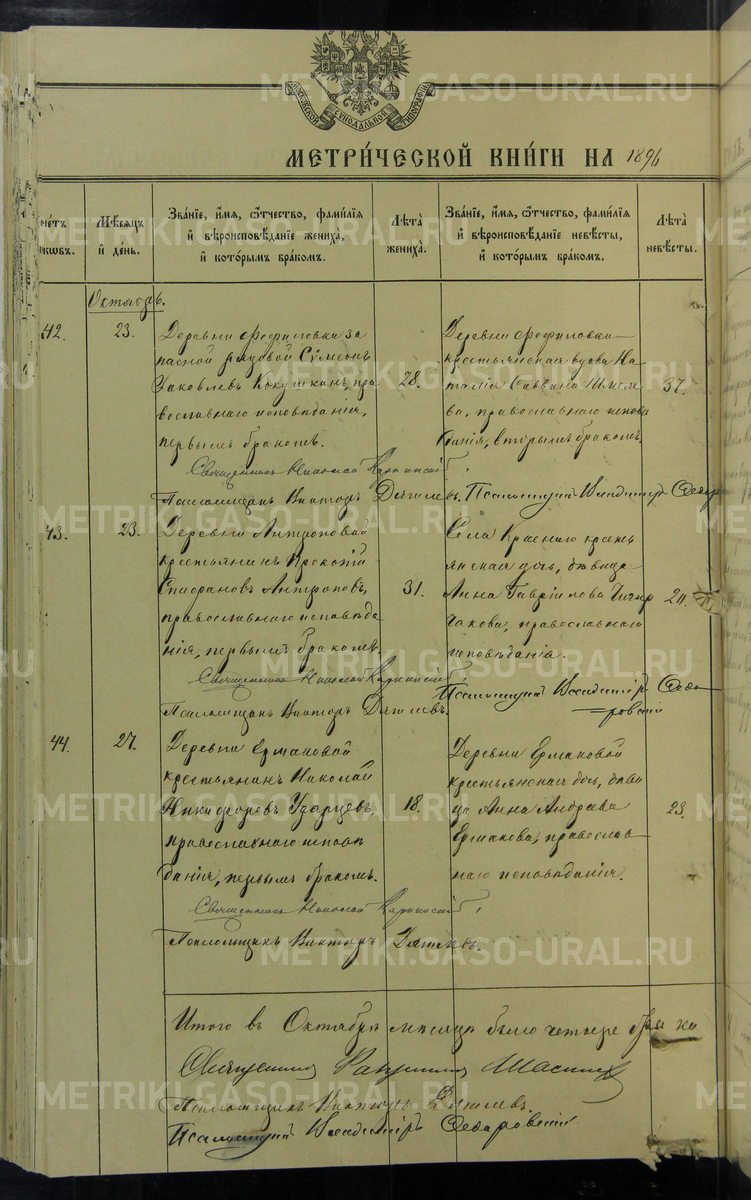 МОСКОВСКОЙ СѴНОДАЛЬНОЙ ТИПОГРАФІИ
METRIKI.GASO-URAL.RU
МЕТРИ́ЧЕСКОЙ КНИ́ГИ НА 1896
ме́тъ
ковъ.
Мѣ́сяцъ
и҆ де́нь.
Зва́нїе, и҆́мя, ѻ҆́тчество, фами́лїя
и҆ вѣроисповѣ́данїе жениха̀,
и҆ кото́рымъ бра́комъ.
Лѣ́та
жениха̀.
Зва́нїе, и҆́мя, ѻ҆́тчество, фами́лїя
и҆ вѣроисповѣ́данїе невѣ́сты,
и҆ кото́рымъ бра́комъ.
Лѣ́та
невѣ́сты.
Октябрь.
42.
23.
Деревни Трофиловки за
пасной рядовой Сѵмеонъ
Яковлевъ Кокушкинъ, пра
вославнаго исповѣданія,
первымъ бракомъ.
28.
Деревни Трофиловки
крестьянская вдова На
талія Саввина
ва, православнаго испов
данія, вторымъ бракомъ.
37.
Священникъ Николай
Псаломщикъ Викторъ Дягилевъ. Псаломщикъ Владимiръ
43.
23.
Деревни Антроповой
крестьянинъ Прокопій
Антроповъ,
православнаго исповѣда
нія, первымъ бракомъ.
31.
Села Краснаго кресть
янская дочь, дѣвица
Анна Гавріилова
православнаго
исповѣданія.
Священникъ Николай
Псаломщикъ Викторъ Дягилевъ.
Псаломщикъ Владимiръ Федо
ровскій
44.
27.
Деревни Ермаковой
крестьянинъ Николай
Никифоровъ
православнаго исповѣ
данія, первымъ бракомъ.
18.
Деревни Ермаковой
крестьянская дочь, дѣви
ца Анна Андреева
Ермакова, православ
наго исповѣданія.
23.
Священникъ Николай
Псаломщикъ Викторъ Дягилевъ.
Итого въ Октябрѣ мѣсяцѣ было четыре брака
Священникъ
Псаломщикъ Викторъ Дягилевъ.
Псаломщикъ Владимiръ Федоровскій